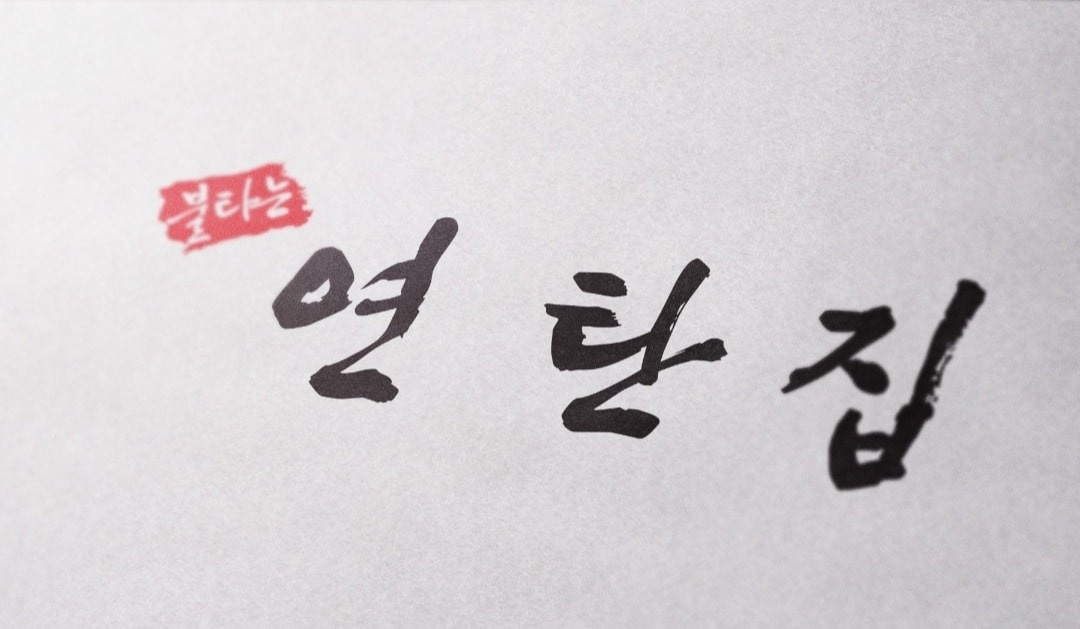 불타는
연탄집